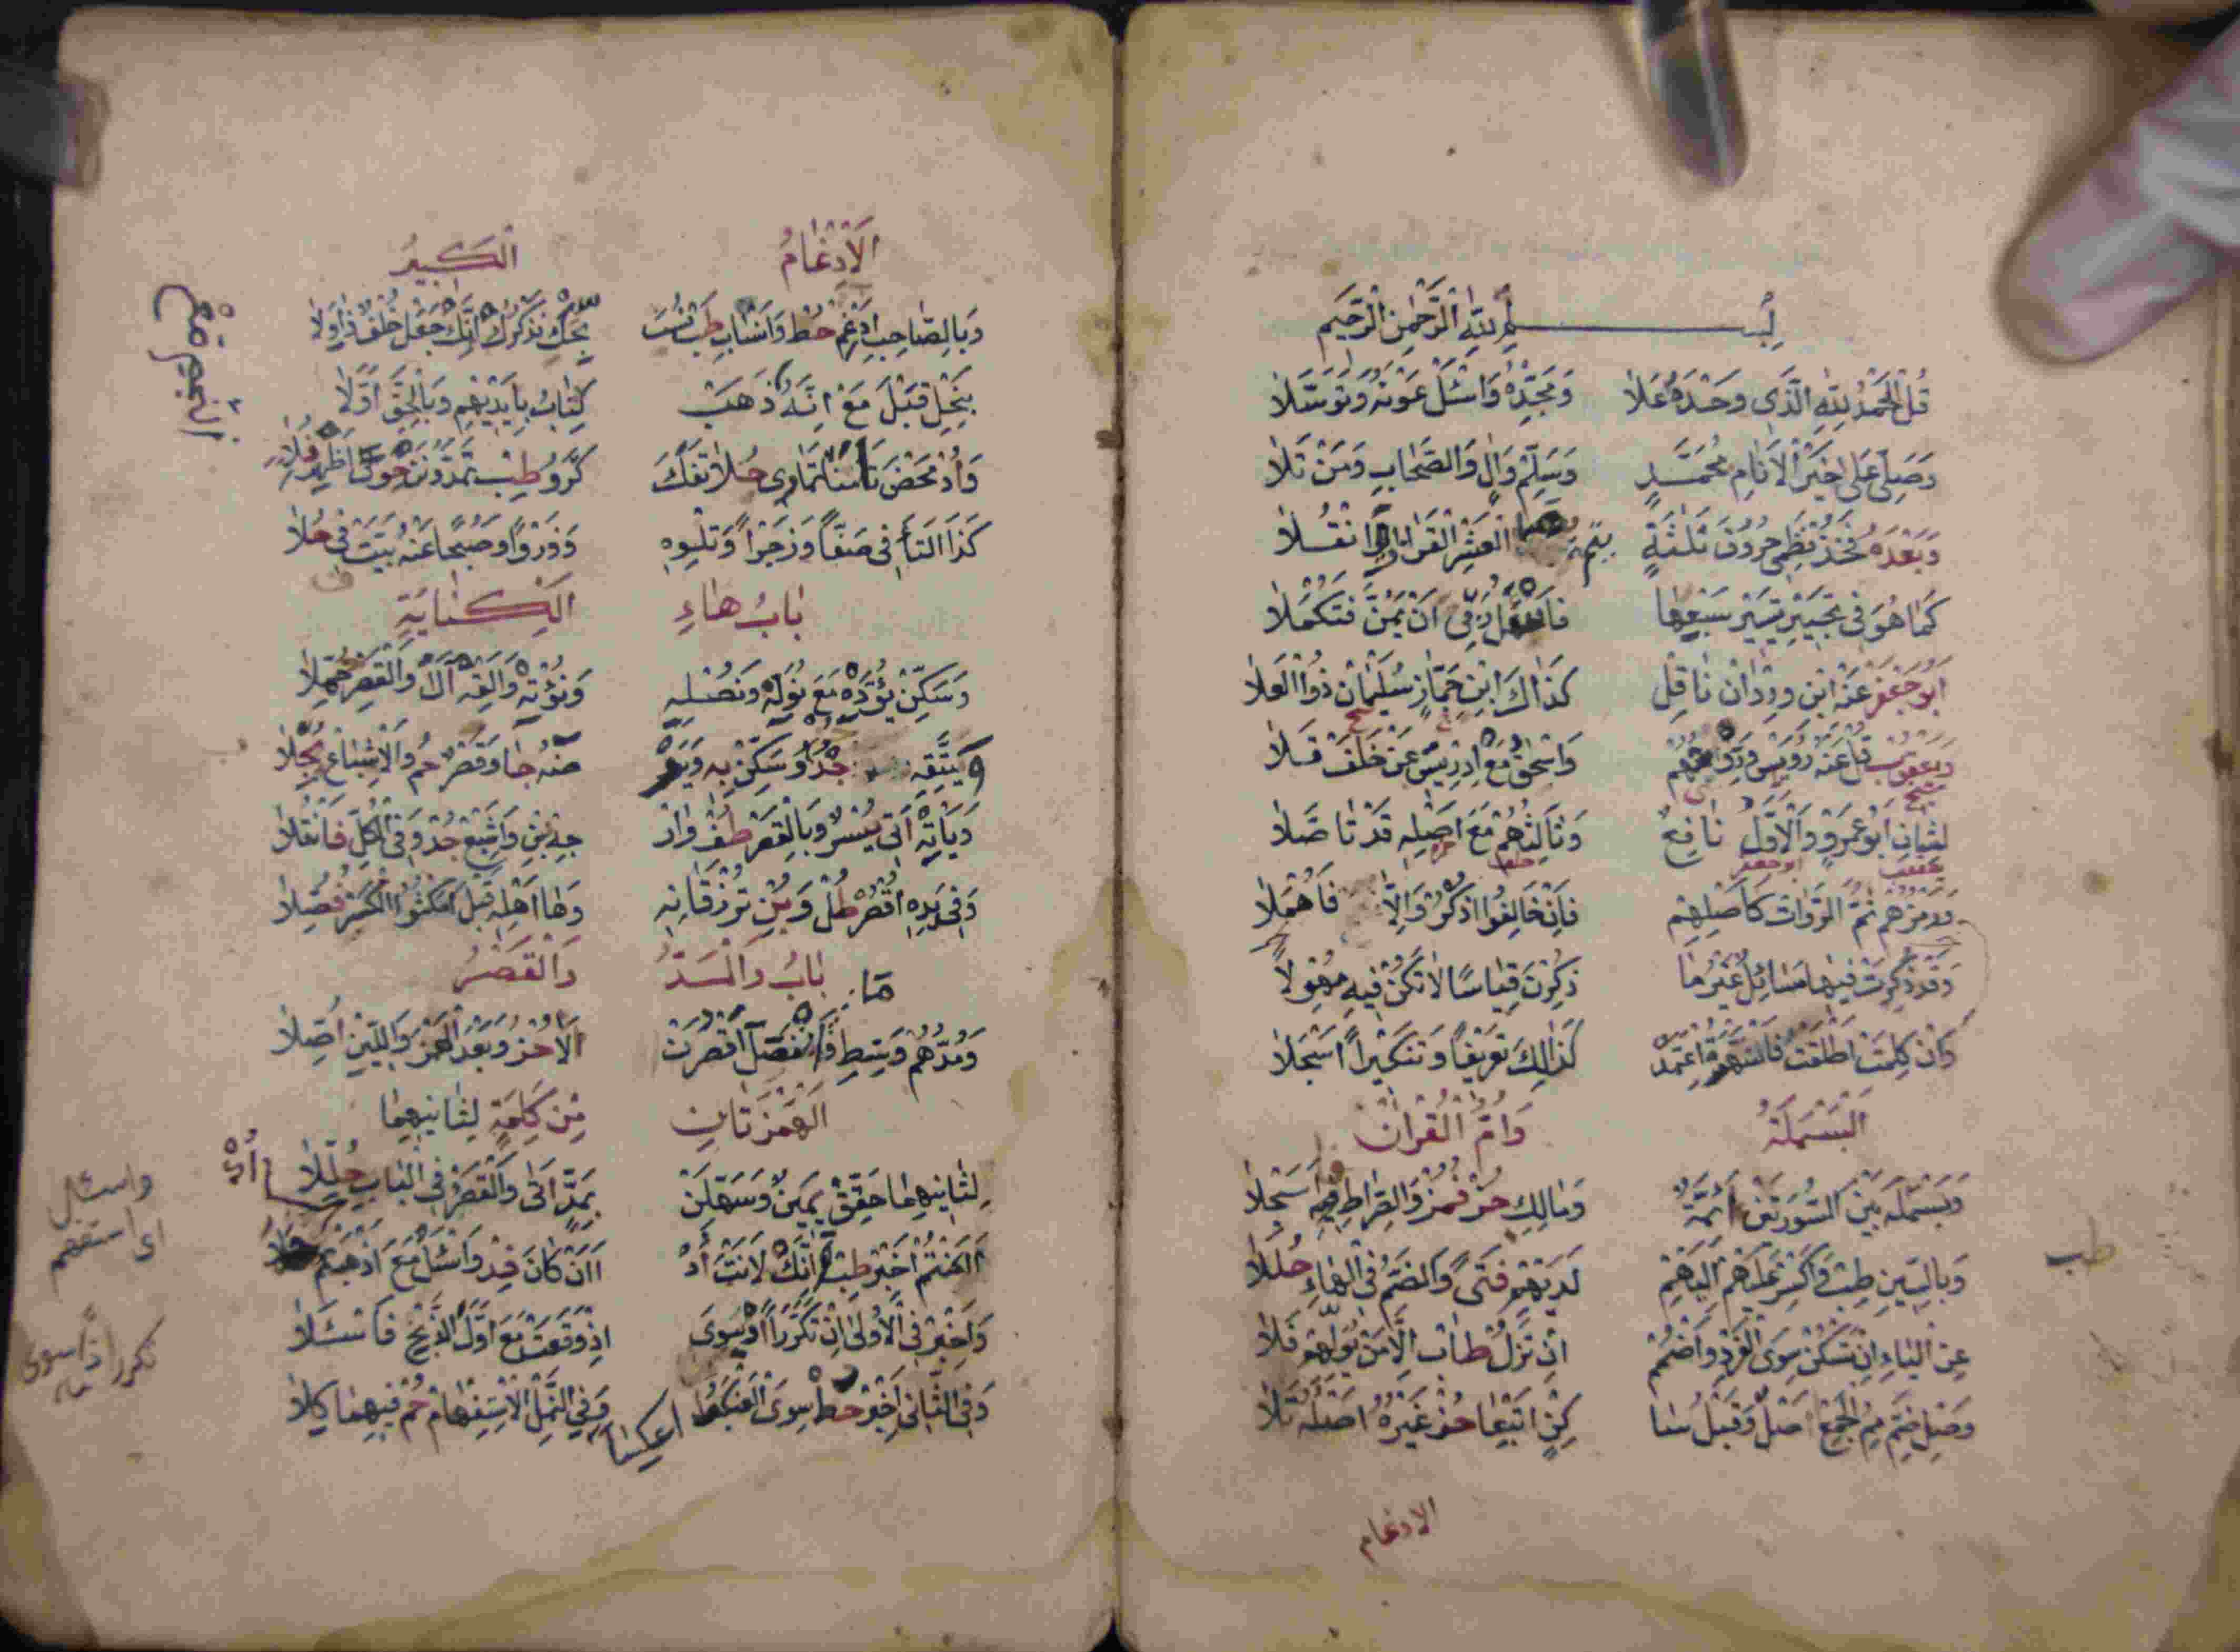 بسم الله الرحمن الرحيم
قُلِ الْحَمْدُ لِلّٰهِ الَّذِي وَحْدَهُ عَلَا وَمَجِّدْهُ وَاسْئَلْ عَوْنَهُ وَتَوَسَّلَا
وَصَلِّ عَلَى خَيْرِ الْاَنَامِ مُحَمَّدٍ وَسَلِّمْ وَاٰلٍ وَالصَّحَابِ وَمَنْ تَلَا
وَبَعْدُ فَخُذْ نَظْمِي حُرُوفَ ثَلٰثَةٍ تتم بها العشر القراات وانقلا
كَمَا هُوَ فِي تَحْبِيرِ تَيْسِيرِ سَبْعِهَا فاسأل ربي اَنْ يَمُنَّ فَتَكْمُلَا
اَبُو جَعْفَرٍ عَنْهُ ابْنُ وِرْدَانَ نَاقِلٌ كَذَاكَ ابْنُ جَمَّازٍ سُلَيْمَانُ ذُو الْعَلَا
وَيَعْقُوبُ قُلْ عَنْهُ رُوَيْسٌ وَرَوْحُهُمْ وَاِسْحٰقُ مَعْ اِدْرِيسَ عَنْ خَلَفٍ تَلَا
لِثَانٍ اَبُو عَمْرٍو وَالْاَوَّلِ نَافِعٌ وَثَالِثُهُمْ مَعْ اَصْلِهِ قَدْ تَاَصَّلَا
وَرَمْزُهُمْ ثُمَّ الرُّوَاتِ كَاَصْلِهِمْ فَاِنْ خَالَفُوا اَذْكُرْ وَاِلَّا فَاُهْمِلَا
وَقَدْ ذُكِرَتْ فِيهَا مَسَائِلُ غَيْرُهَا ذُكِرْنَ قِيَاسًا لَا تَكُنْ فِيهِ مُهْوِلًا
وَاِنْ كِلْمَةٌ اَطْلَقْتُ فَالشُّهْرَةَ اعْتَمِدْ كَذَالِكَ تَعْرِيفًا وَتَنْكِيرًا اَسْجِلَا
اَلْبَسْمَلَةُ وَاُمُّ الْقُرْاٰنِ
وَبَسْمَلَ بَيْنَ السُّورَتَيْنِ اَئِمَّةٌ وَمَالِكِ حُزْ فُزْ وَالصِّرَاطِ فِهِ اسْجِلَا
وَبِالسِّينِ طِبْ وَاكْسِرْ عَلَيْهِمْ اِلَيْهِمْ لَدَيْهِمْ فَتًى وَالضَّمُّ فِي الْهَاءِ حُلِّلَا
طب
عَنِ الْيَاءِ اِنْ تَسْكُنْ سِوَى الْفَرْدِ وَاضْمُمْ اِنْ تَزُلْ طَابَ اِلَّا مَنْ يُوَلِّهِمْ فَلَا
وَصِلْ ضَمَّ مِيمِ الْجَمْعِ اَصْلٌ وَقَبْلَ سَا كِنٍ اَتْبِعَا حُزْ غَيْرُهُ اَصْلَهُ تَلَا
الادغام
اَلْاِدْغَامُ الْكَبِيرُ
وَبِالصَّاحِبِ ادْغِمْ حُطْ وَاَنْسَابَ طِبْ نُسَبِّحَكْ نَذْكُرَكْ اِنَّكْ جَعَلْ خُلْفُ ذَا وِلَا
بِنَحْلٍ قِبَلْ مَعْ اَنَّهُ ذَهَبْ كِتَابَ بِاَيْدِيهِمْ وَبِالْحَقِّ اَوَّلَا
النجم مع
وَاُدْ مَحْضَ تَأْمَنَّا تَمَارَى حُلًا تَفَكَّرُو طِبْ تُمِدُّونَنْ حَوَى اَظْهِرَنْ فُلَا
كَذَا التَّاءُ فِي صَفًّا وَزَجْرًا وَتَلْوِهِ وَذَرْوًا وَصُبْحًا عَنْهُ بَيَّتَ فِي حُلَا
بَابُ هَاءِ الْكِنَايَةِ
وَسَكِّنْ يُؤَدِّهْ مَعْ نُوَلِّهْ وَنُصْلِهِ وَنُؤْتِهْ وَاَلْقِهْ اٰلَ وَالْقَصْرُ حُمِّلَا
وَيَتَّقِهِ جُدْ وَسَكِّنْ بِهِ وَيَرْضَهُ جَا وَقَصْرٌ حُمْ وَالْاِشْبَاعُ بُجِّلَا
وَيَأْتِهْ اَتَى يُسْرٌ وَبِالْقَصْرِ طُفْ وَاَرْجِهِ بِنْ وَاَشْبِعْ جُدْ وَفِي الْكُلِّ فَانْقُلَا
وَفِي يَدِهِ اقْصُرْ طُلْ وَبِنْ تُرْزَقَانِهِ وَهَا اَهْلِهِ قَبْلَ امْكُثُوا الْكَسْرُ فُصِّلَا
بَابُ الْمَدِّ وَالْقَصْرِ
وَمَدَّهُمْ وَسِّطْ وَمَا انْفَصَلَ اقْصُرَنْ اَلَا حُزْ وَبَعْدَ الْهَمْزِ وَاللِّينِ اُصِّلَا
اَلْهَمْزَتَانِ مِنْ كَلِمَةٍ
لِثَانِيهِمَا حَقِّقْ يَمِينٌ وَسَهِّلَنْ بِمَدٍّ اَتَى وَالْقَصْرُ فِي الْبَابِ حُلِّلَا
ءَاٰمَنْتُمُ اَخْبِرْ طِبْ ءَاِنَّكَ لَاَنْتَ اُدْ ءَاَنْ كَانَ فِدْ وَاسْئَلْ مَعْ اَذْهَبْتُمُ حَلَا
واسئل
اى استفهم
وَاَخْبِرْ فِي الْاُولَى اِنْ تَكَرَّرَ اِذًا سِوَى اِذْ وَقَعَتْ مَعْ اَوَّلِ الذِّبْحِ فَاسْئَلَا
تكرر اذا سوى
وَفِي الثَّانِ اَخْبِرْ حُطْ سِوَى الْعَنْكَبِ اعْكِسَا وَفِي النَّمْلِ الْاِسْتِفْهَامُ حُمْ فِيهِمَا كِلَا